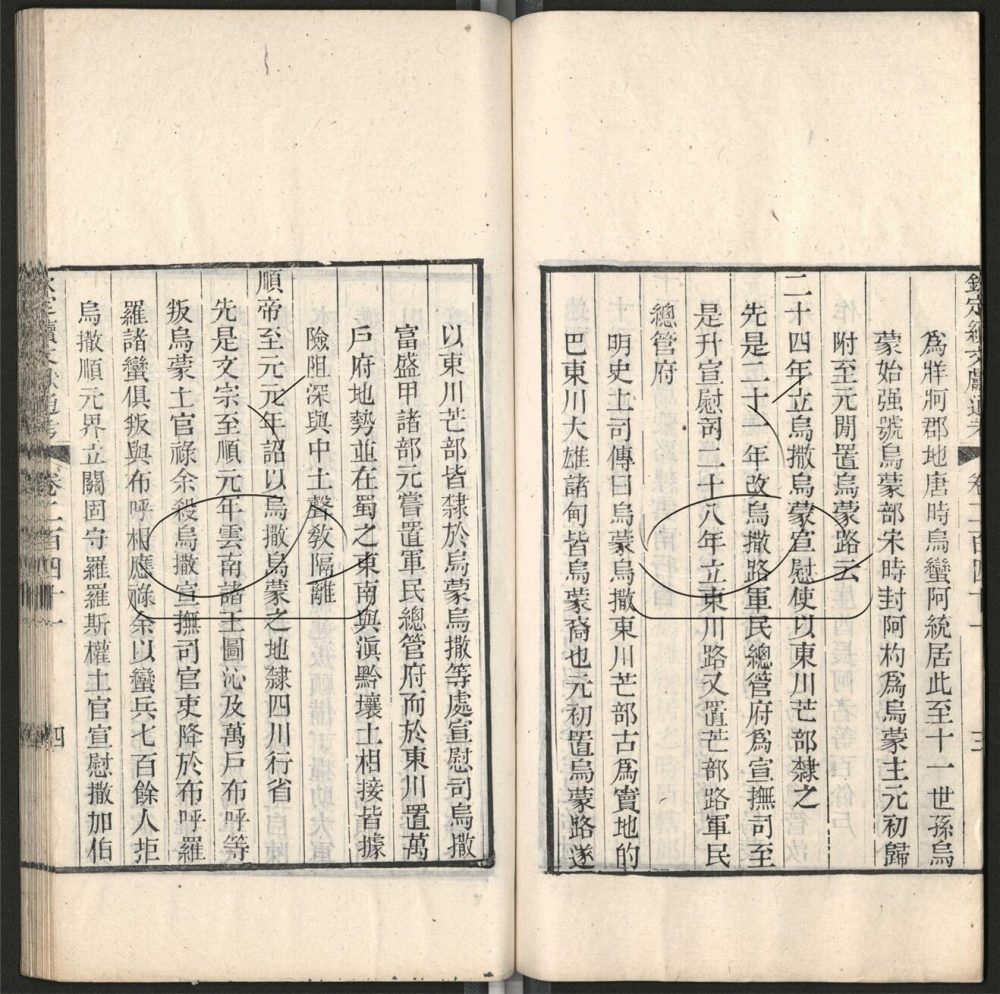 欽定續文獻通考 卷二百四十一 三
爲牂牁郡地唐時烏蠻阿統居此至十一世孫烏
蒙始强號烏蒙部宋時封阿杓爲烏蒙主元初歸
附至元閒置烏蒙路云
二十四年立烏撒烏蒙宣慰使以東川芒部隸之
先是二十一年改烏撒路軍民總管府爲宣撫司至
是升宣慰司二十八年立東川路又置芒部路軍民
總管府
明史土司傳曰烏蒙烏撒東川芒部古爲竇地的
巴東川大雄諸甸皆烏蒙裔也元初置烏蒙路遂
以東川芒部皆隸於烏蒙烏撒等處宣慰司烏撒
富盛甲諸部元嘗置軍民總管府而於東川置萬
戶府地勢並在蜀之東南與滇黔壤土相接皆據
險阻深與中土聲教隔離
順帝至元元年詔以烏撒烏蒙之地隸四川行省
先是文宗至順元年雲南諸王圖沁及萬戶布呼等
叛烏蒙土官祿余殺烏撒宣撫司官吏降於布呼羅
羅諸蠻俱叛與布呼相應祿余以蠻兵七百餘人拒
烏撒順元界立關固守羅羅斯權土官宣慰撒加伯
欽定續文獻通考 卷二百四十一 四